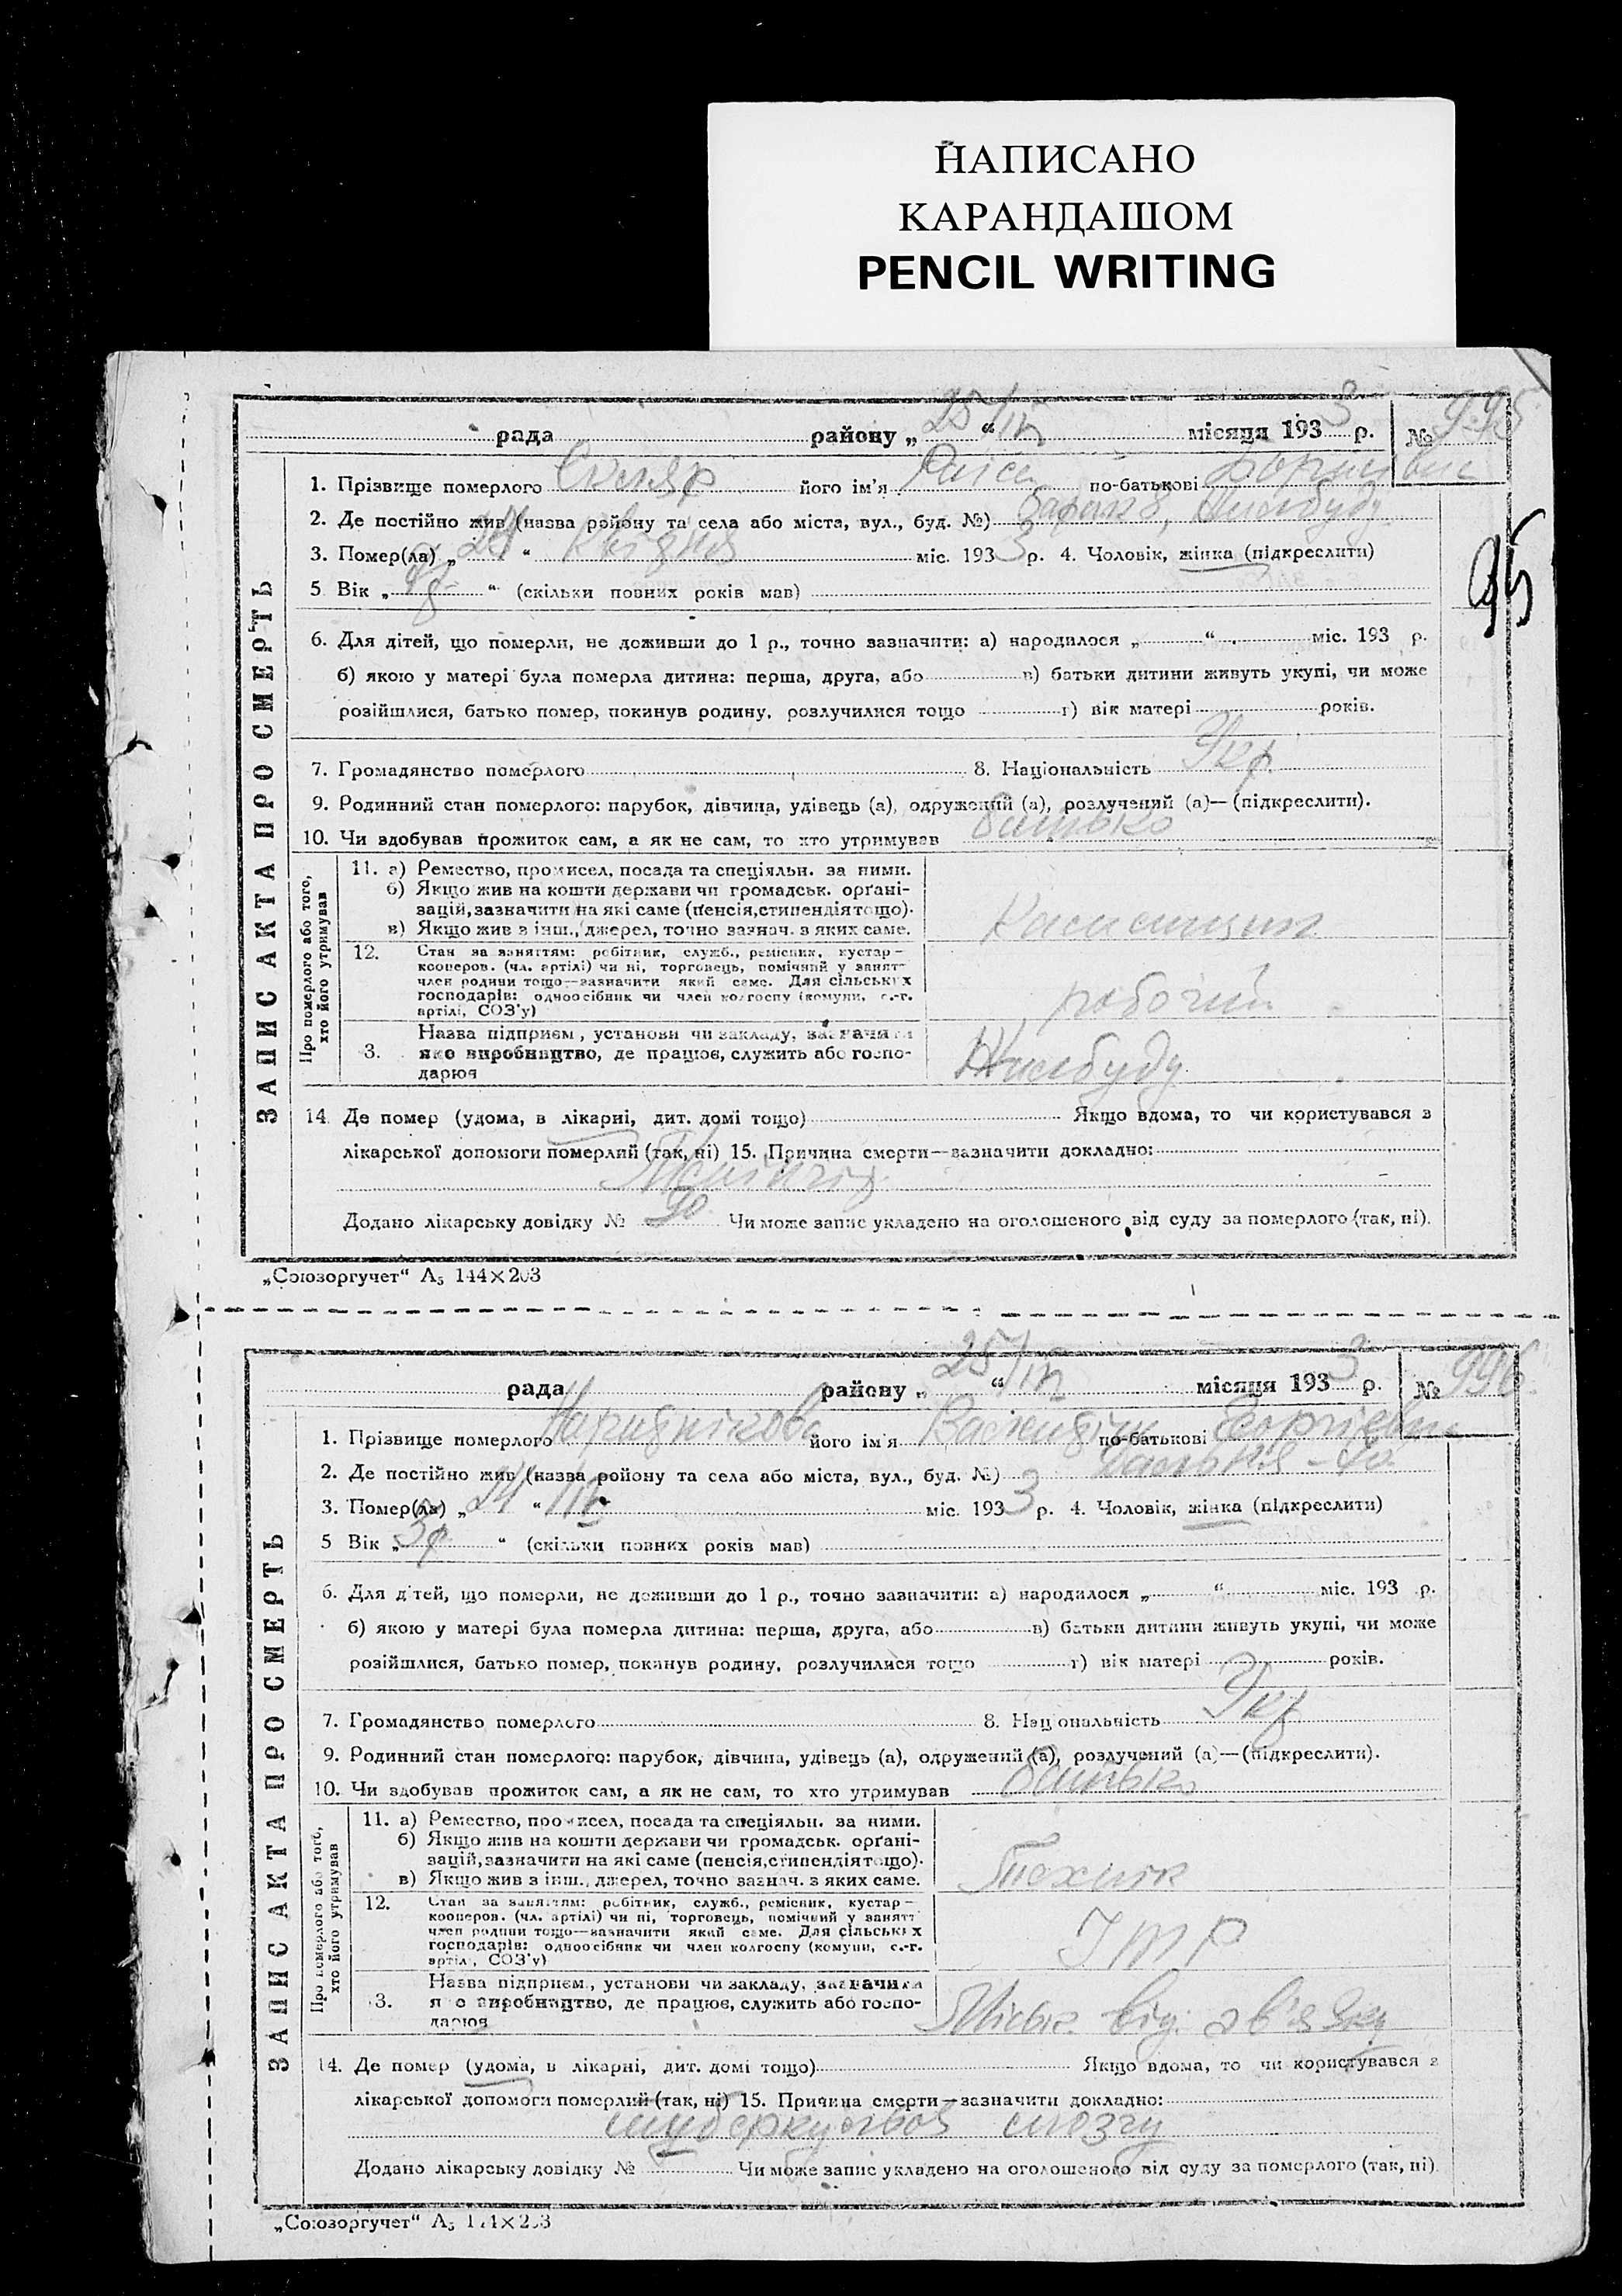 НАПИСАНО
КАРАНДАШОМ
PENCIL WRITING
рада району „ 25/IV “ місяця 1933 р. № 995
1. Прізвище померлого Скляр його ім'я Раїса по-батькові
2. Де постійно жив (назва району та села або міста, вул., буд. №) барак 8,
3. Помер(ла) „ 24 “ Квітня міс. 1933 р. 4. Чоловік, жінка (підкреслити)
95
5 Вік „ “ (скільки повних років мав)
6. Для дітей, що померли, не доживши до 1 р., точно зазначити: а) народилося „ “ міс. 193 р.
б) якою у матері була померла дитина: перша, друга, або в) батьки дитини живуть укупі, чи може
розійшлися, батько помер, покинув родину, розлучилися тощо г) вік матері років.
7. Громадянство померлого 8. Національність Укр
9. Родинний стан померлого: парубок, дівчина, удівець (а), одружений (а), розлучений (а)— (підкреслити).
10. Чи здобував прожиток сам, а як не сам, то хто утримував батько
ЗАПИС АКТА ПРО СМЕРТЬ
Про померлого або того,
хто його утримував
11. а) Ремество, промисел, посада та спеціяльн. за ними.
б) Якщо жив на кошти держави чи громадськ. орґані-
зацій, зазначити на які саме (пенсія, стипендія тощо).
в) Якщо жив з інш., джерел, точно зазнач. з яких саме.
12. Стан за заняттям: робітник, служб., ремісник, кустар–
кооперов. (чл. артілі) чи ні, торговець, помічний у занят–
член родини тощо—зазначити який саме. Для сільських
господарів: одноосібник чи член колгоспу (комуни, с.-г.
артілі, СОЗ'у)
робочий
Назва підприєм., установи чи закладу, зазначити
3. яко виробництво, де працює, служить або госпо-
дарює
14. Де помер (удома, в лікарні, дит. домі тощо) Якщо вдома, то чи користувався з
лікарської допомоги померлий (так, ні) 15. Причина смерти—зазначити докладно:
Менінгіт
Додано лікарську довідку № 90 Чи може запис укладено на оголошеного від суду за померлого (так, ні).
„Союзоргучет“ А5 144×203
рада району „ 25/IV “ місяця 1933 р. № 996
1. Прізвище померлого його ім'я Валентіна по-батькові Георгіевна
2. Де постійно жив (назва району та села або міста, вул., буд. №)
3. Помер(ла) „ 24 “ IV міс. 1933 р. 4. Чоловік, жінка (підкреслити)
5 Вік „ 3 р. “ (скільки повних років мав)
6. Для дітей, що померли, не доживши до 1 р., точно зазначити: а) народилося „ “ міс. 193 р.
б) якою у матері була померла дитина: перша, друга, або в) батьки дитини живуть укупі, чи може
розійшлися, батько помер, покинув родину, розлучилися тощо г) вік матері років.
7. Громадянство померлого 8. Національність Укр
9. Родинний стан померлого: парубок, дівчина, удівець (а), одружений (а), розлучений (а)—(підкреслити).
10. Чи здобував прожиток сам, а як не сам, то хто утримував батько
ЗАПИС АКТА ПРО СМЕРТЬ
Про померлого або того,
хто його утримував
11. а) Ремество, промисел, посада та спеціяльн. за ними.
б) Якщо жив на кошти держави чи громадськ. орґані-
зацій, зазначити на які саме (пенсія, стипендія тощо).
в) Якщо жив з інш., джерел, точно зазнач. з яких саме.
Технік
12. Стан за заняттям: робітник, служб., ремісник, кустар–
кооперов. (чл. артілі) чи ні, торговець, помічний у занятт
член родини тощо—зазначити який саме. Для сільських
господарів: одноосібник чи член колгоспу (комуни, с.-г.
артілі, СОЗ'у)
ІТР
Назва підприєм., установи чи закладу, зазначити
3. яко виробництво, де працює, служить або госпо-
дарює
Міськ. від. зв'язку
14. Де помер (удома, в лікарні, дит. домі тощо) Якщо вдома, то чи користувався з
лікарської допомоги померлий (так, ні) 15. Причина смерти—зазначити докладно:
туберкульоз мозгу
Додано лікарську довідку № Чи може запис укладено на оголошеного від суду за померлого (так, ні)
„Союзоргучет“ А5 144×203